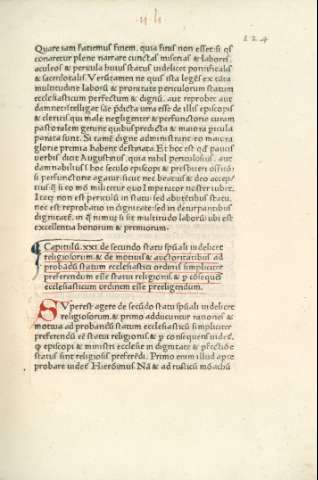 124
Quare iam faciemus finem. quia finis non esset si q̄s
conaretur plene narrare cunctas miserias & labores.
aculeos & pericula huius status uidelicet pontificalis
& sacerdotalis. Verūtamen ne quis ista legēs ex tāta
multitudine laborū & pronitate periculorum statum
ecclesiasticum perfectum & dignū. aut reprobet aut
damnet. intelligat hæc prædicta uera esse de illis episcopis
& clericis qui male negligenter & perfunctorie curam
pastoralem gerunt quibus prædicta & maiora picula
parata sunt. Si tamē digne administrant eo maiora
gloriæ premia habent destinata. Et hoc est qđ paucis
uerbis dicit Augustinus. quia nihil periculosius. aut
damnabilius ī hoc seculo episcopi & presbiteri officio
si perfunctorie agatur sicut nec beatius & deo accep/
tius ē si eo mō militetur quo Imperator noster iubet.
Itaq̄ non est periculū in statu sed abutentibus statu.
nec est reprobatio in dignitate sed in deturpantibus
dignitatē. in q̄ nimirū si sit multitudo laborū ubi est
excellentia honorum & premiorum.
Capitulū .xxi. de secundo statu sp̄uali uidelicet
religiosorum & de motiuis & auctoritatibus ad
probandū statum ecclesiastici ordinis simpliciter
preferendum esse statui religionis & p̄ cōsequēs
ecclesiasticum ordinem esse preeligendum.
Superest agere de secūdo statu sp̄uali uidelicet
religiosorum. & primo adducuntur rationes &
motiua ad probandū statum ecclesiasticū simpliciter
preferendū eē statui religionis. & p̄ consequens uidet̄.
q̄ episcopi & ministri ecclesiæ in dignitate & p̄fectiōe
status sint religiosis preferēdi. Primo enim illud apte
probare uidet̄ Hierōimus. Nā & ad rusticū mōachū